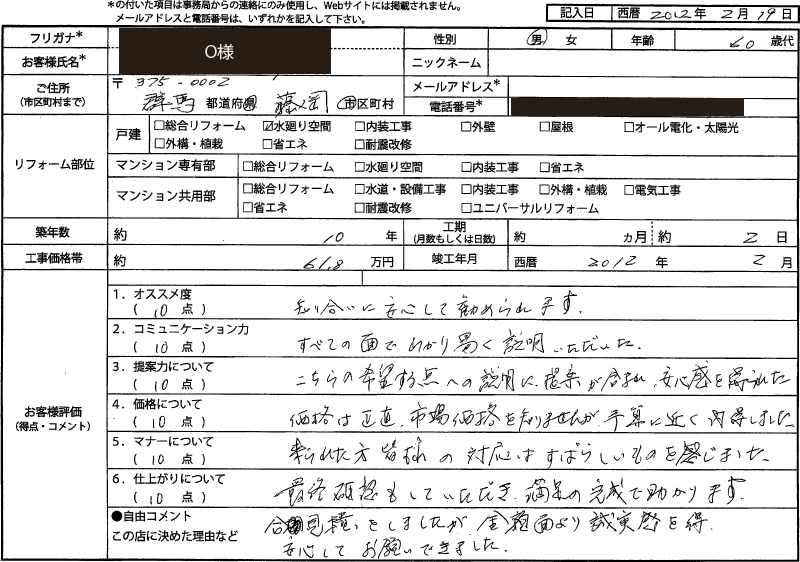 *の付いた項目は事務局からの連絡にのみ使用し、Webサイトには掲載されません。
メールアドレスと電話番号は、いずれかを記入して下さい。
記入日 西暦 2012年 2月 19日
フリガナ*
お客様氏名*
O様
性別 男 女 年齢 60 歳代
ニックネーム
ご住所
(市区町村まで)
〒 375-0002
群馬 都道府県 藤岡 市区町村
メールアドレス*
電話番号*
リフォーム部位
戸建 □総合リフォーム ☑水廻り空間 □内装工事 □外壁 □屋根 □オール電化・太陽光
□外構・植栽 □省エネ □耐震改修
マンション専有部 □総合リフォーム □水廻り空間 □内装工事 □省エネ
マンション共用部 □総合リフォーム □水道・設備工事 □内装工事 □外構・植栽 □電気工事
□省エネ □耐震改修 □ユニバーサルリフォーム
築年数 約 10 年 工期
(月数もしくは日数) 約 カ月 約 2 日
工事価格帯 約 61.8 万円 竣工年月 西暦 2012 年 2 月
お客様評価
(得点・コメント)
1.オススメ度
( 10 点 ) 知り合いに安心して勧められます。
2.コミュニケーション力
( 10 点 ) すべての面でわかり易く説明いただいた。
3.提案力について
( 10 点 ) こちらの希望する点への説明に、提案が含まれ、安心感を得られた
4.価格について
( 10 点 ) 価格は正直、市場価格を知りませんが、予算に近く納得しました
5.マナーについて
( 10 点 ) 来られた方皆様の対応はすばらしいものを感じました。
6.仕上がりについて
( 10 点 ) 最終確認もしていただき、満足の完成で助かります。
●自由コメント
この店に決めた理由など
見積いをしましたが 全面より誠実感を得、
安心してお願いできました。